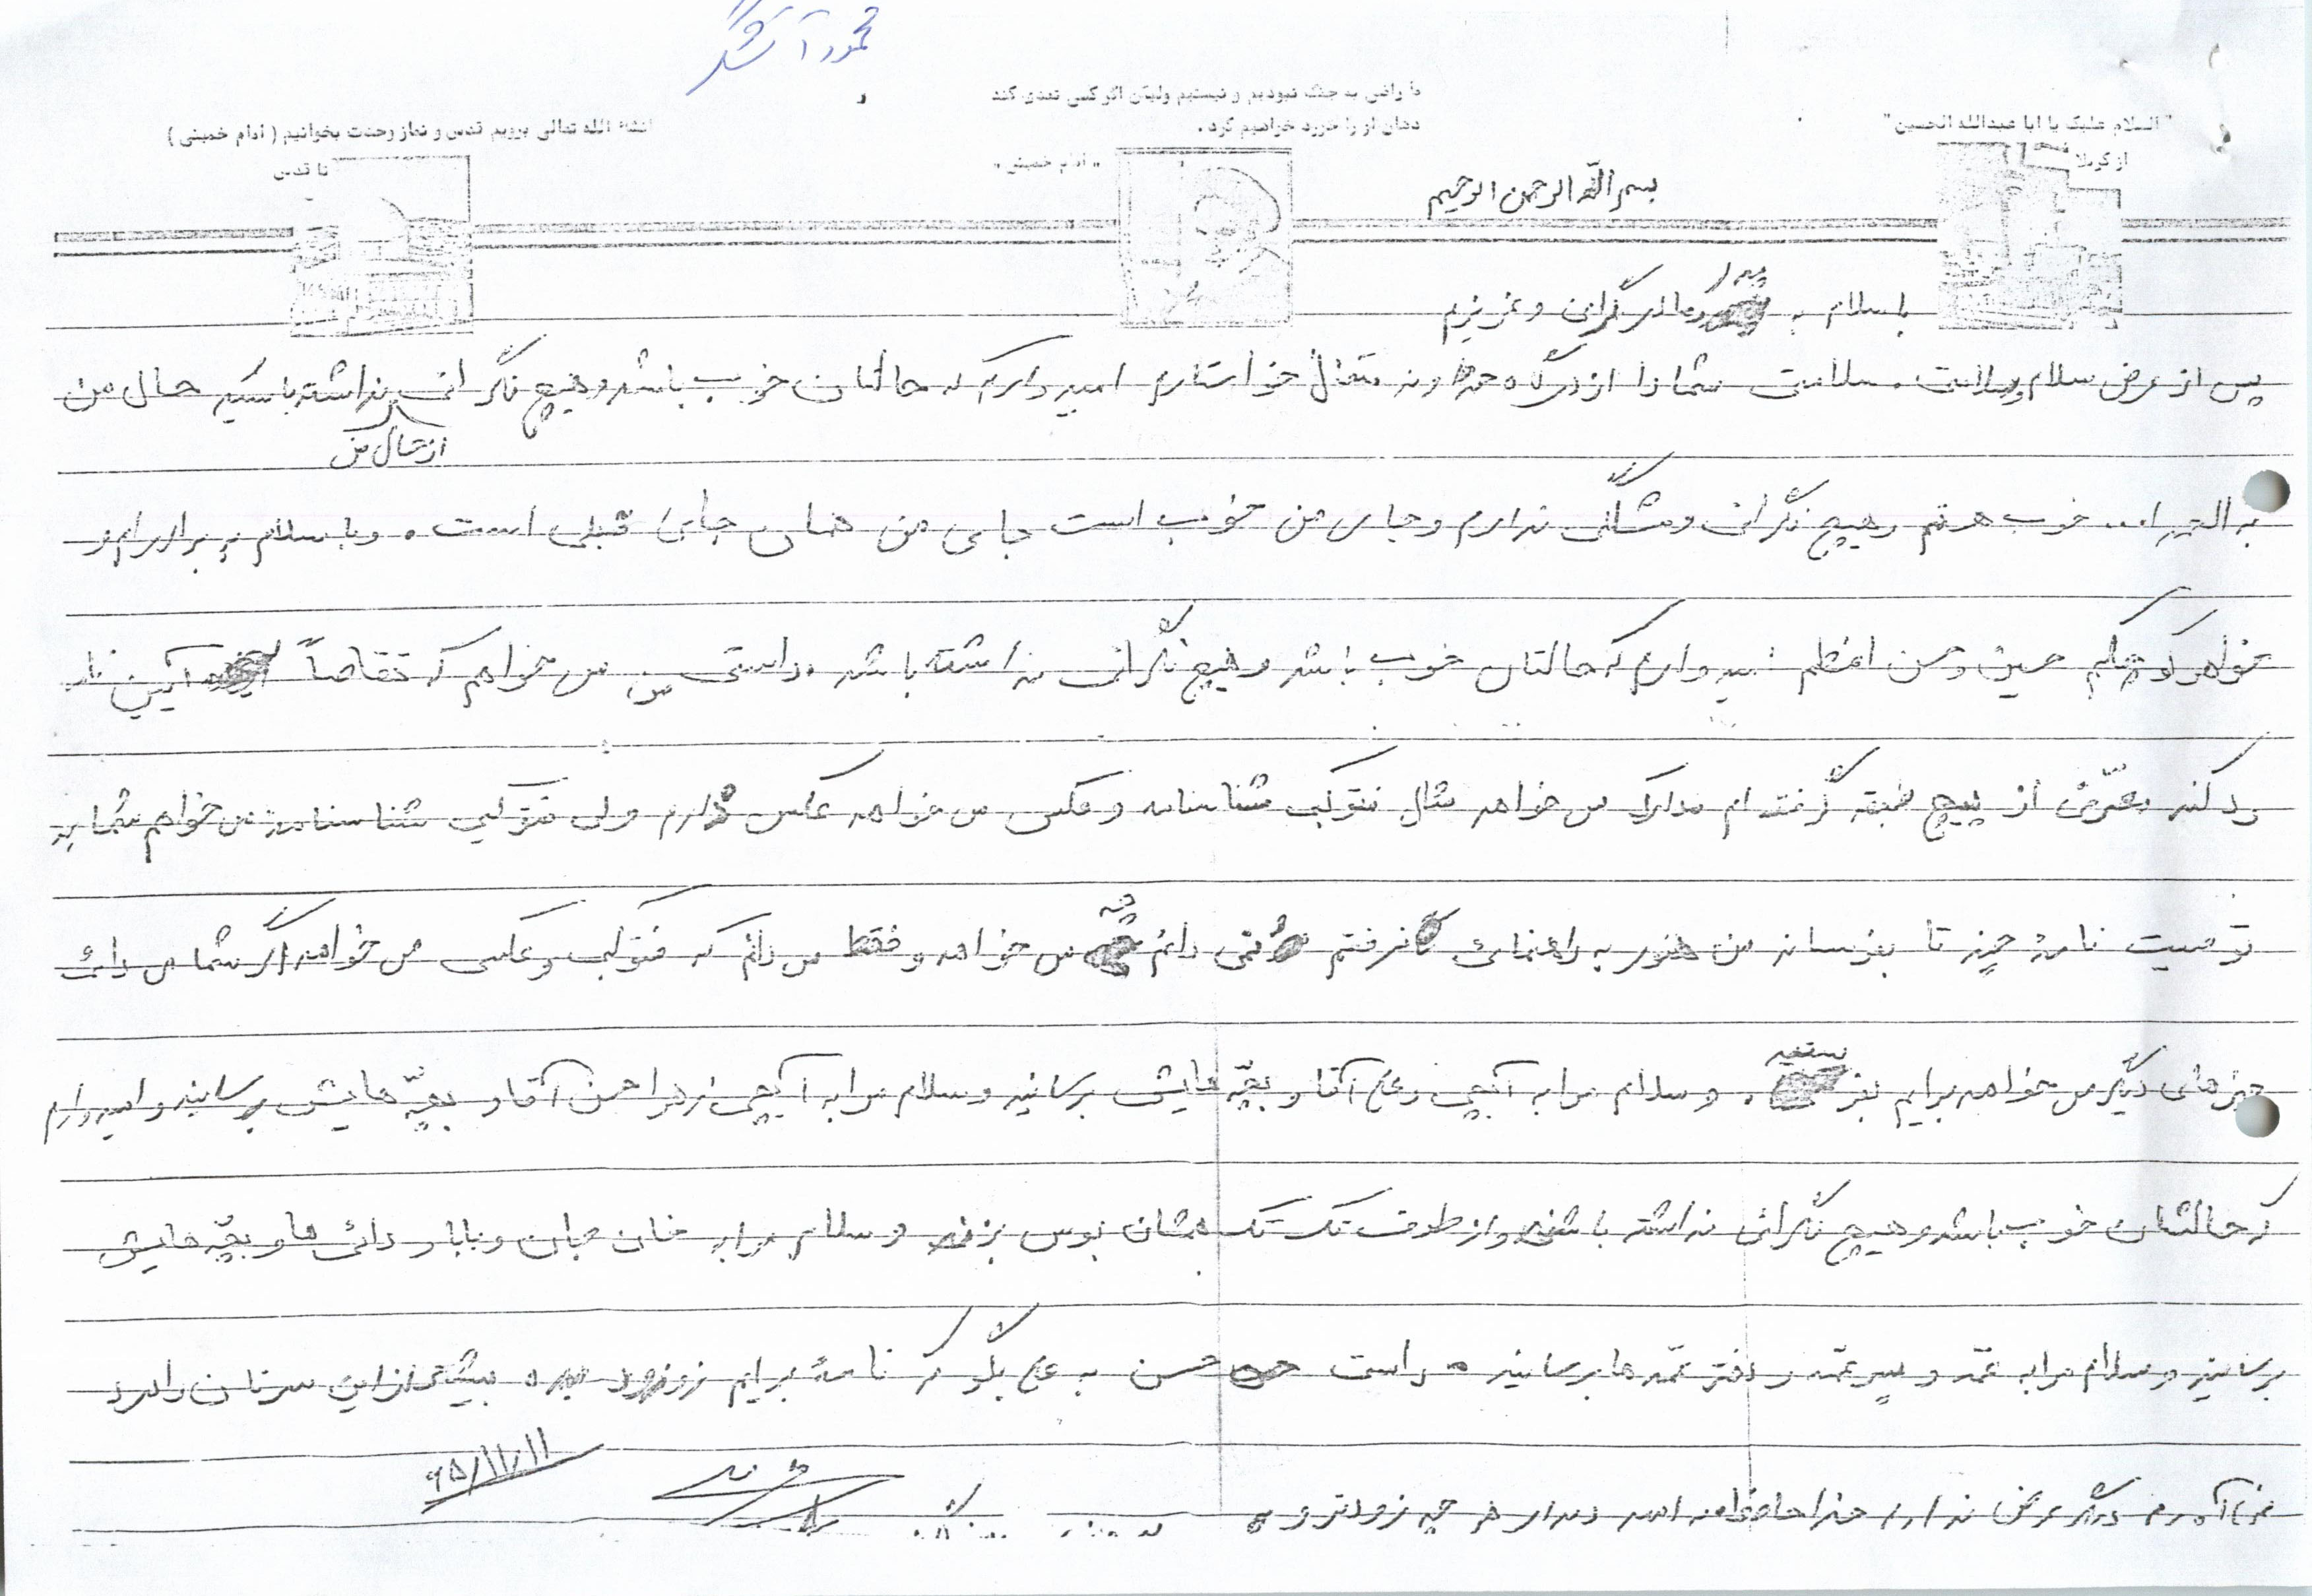 محمود آتشگر
ما راضی به جنگ نبودیم و نیستیم ولیکن اگر کسی تعدی کند
دهان او را خرد خواهیم کرد.
" امام خمینی "
" السلام علیک یا ابا عبدالله الحسین "
از کربلا
انشاء الله تعالی برویم قدس و نماز وحدت بخوانیم ( امام خمینی )
تا قدس
بسم الله الرحمن الرحیم
با سلام به پدر و مادر گرامی و عزیزم
پس از عرض سلام و سلامت. سلامتی شما را از درگاه خداوند متعال خواستارم امیدوارم که حالتان خوب باشد و هیچ نگرانی از حال من نداشته باشید حال من
به الحمد ا... خوب هستم و هیچ نگرانی و مشکلی ندارم و جای من خوب است جای من همان جای قبلی است. و با سلام به برادرام و
خواهر کوچکم حسین و حسن اعظم امیدوارم که حالتان خوب باشد و هیچ نگرانی نداشته باشد. راستی من می خواهم که تقاضاً آیین نامه
رد کنم معرفی از بسیج گرفته ام مدارک می خواهد مثال فتوکپی شناسنامه و عکس می خواهد عکس دارم ولی فتوکپی شناسنامه می خواهم شما به
نامه چیز تا بفرستند من هنوز به راهنمائی نرفتم نمی دانم چه می خواهد و فقط می دانم که فتوکپی و عکس می خواهد اگر شما می دانی
چیزهای دیگر می خواهد برایم بفرستید. و سلام مرا به آبجی و علی آقا و بچّه هایش برسانید و سلام مرا به آبجی زهرا حسن آقا و بچّه هایش برسانید و امیدوارم
که حالشان خوب باشد و هیچ نگرانی نداشته باشند و از طرف تک تک همشان بوس بزنید و سلام مرا به خان جان و بابا و دائی ها و بچّه هایش
برسانید و سلام مرا به عمّه و پسر عمّه و دختر عمّه ها برسانید. راست حسن به علی بگو که نامه برایم بیشتر از این سرتان را درد
نمی آورم دیگر عرضی ندارم خدا حافظ به امید دیدار هر چه زودتر
۶۵/۱۱/۱۱